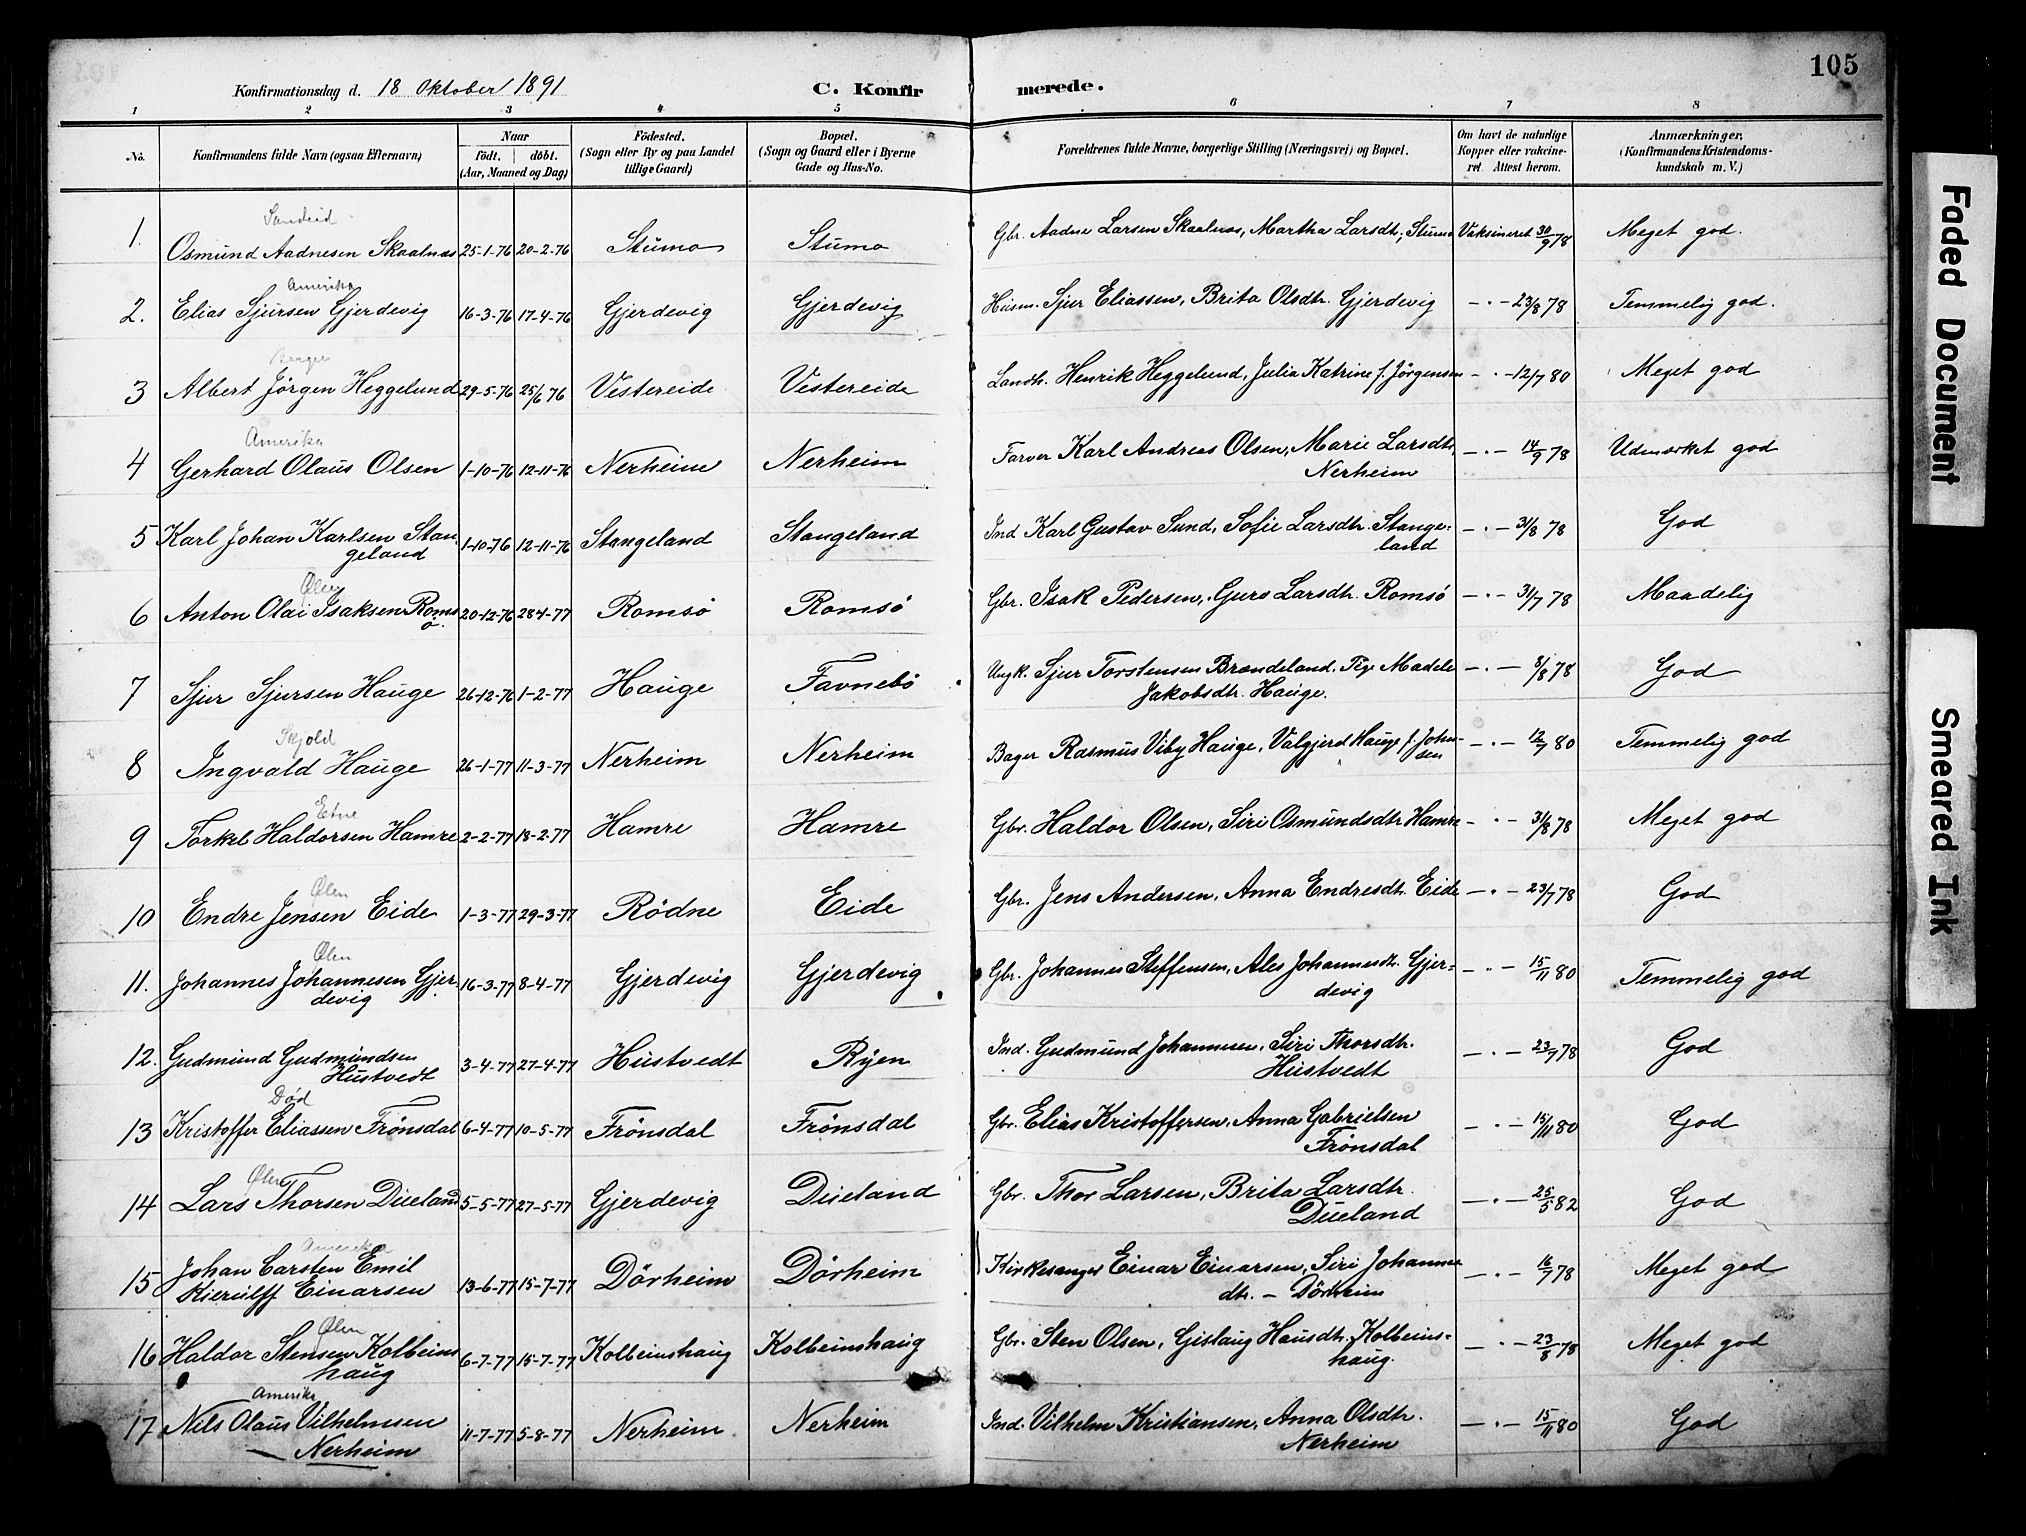 105
Konfirmationsdag d. 18 Oktober 1891
C. Konfirmerede.
1 2 3 4 5 6 7 8
No. Konfirmandens fulde Navn (ogsaa Efternavn) Naar födt. döbt. (Aar, Maaned og Dag) Födested. (Sogn eller By og paa Landet tillige Gaard) Bopæl. (Sogn og Gaard eller i Byerne Gade og Hus-No. Forældrenes fulde Navne, borgerlige Stilling (Næringsvei) og Bopæl. Om havt de naturlige Kopper eller vaccineret Attest herom. Anmærkninger. (Konfirmandens Kristendomskundskab m. V.)
Sandeid
1. Osmund Aadnesen Skaalnæs 25-1-76 20-2-76 Stumo Stumo Gbr. Aadne Larsen Skaalnæs, Martha Larsdt., Stumo Vaksineret 30/9 78 Meget god.
Amerika
2. Elias Sjursen Gjerdevig 16-3-76 17-4-76 Gjerdevig Gjerdevig Husm. Sjur Eliassen, Brita Olsdtr. Gjerdevig -"- 23/8 78 Temmelig god.
Bergen
3 Albert Jörgen Heggelund 29-5-76 25/6 76 Vestereide Vestereide Landh. Henrik Heggelund, Julia Katrine f. Jörgensen -"- 12/7 80 Meget god
Amerika
4 Gerhard Olaus Olsen 1-10-76 12-11-76 Nerheim Nerheim Farver Karl Andreas Olsen, Marie Larsdtr. -"- 14/9 78 Udmærket god
Nerheim
5 Karl Johan Karlsen Stan- 1-10-76 12-11-76 Stangeland Stangeland Ind Karl Gustav Sund, Sofie Larsdtr. Stange- -"- 31/8 78 God
geland land
Ølen
6 Anton Olai Isaksen Roms 20-12-76 28-1-77 Romsö Romsö Gbr. Isak Pedersen, Guro Larsdtr. Romsö -"- 31/7 78 Maadelig
ö.
7 Sjur Sjursen Hauge 26-12-76 1-2-77 Hauge Favnebö Ungk. Sjur Torstensen Brændeland. Pige Madele -"- 8/8 78 God
Jakobsdtr. Hauge.
Skjold
8 Ingvald Hauge 26-1-77 11-3-77 Nerheim Nerheim Bager Rasmus Viby Hauge, Valgjerd Hauge f. John- -"- 12/7 80 Temmelig god
sen
Etne
9 Torkel Haldorsen Hamre 2-2-77 18-2-77 Hamre Hamre Gbr. Haldor Olsen, Siri Osmundsdtr Hamre -"- 31/8 78 Meget god
Ølen
10 Endre Jensen Eide 1-3-77 29-3-77 Rödne Eide Gbr. Jens Andersen, Anna Endresdtr. Eide -"- 23/7 78 God
Ølen
11. Johannes Johannesen Gjer- 16-3-77 8-4-77 Gjerdevig Gjerdevig Gbr. Johannes Steffensen, Ales Johannesdtr. Gjer- -"- 15/11 80 Temmelig god
devig devig
12. Gudmund Gudmundsen 3-4-77 27-4-77 Hustvedt Ryen Ind. Gudmund Johannesen, Siri Thorsdtr. -"- 23/7 78 God
Hustvedt Hustvedt
Död
13 Kristoffer Eliassen Frönsdal 6-4-77 10-5-77 Frönsdal Frönsdal Gbr. Elias Kristoffersen, Anna Gabrielsen -"- 15/11 80 God
Frönsdal
Ølen
14 Lars Thorsen Dueland 5-5-77 27-5-77 Gjerdevig Dueland Gbr. Thor Larsen, Brita Larsdtr. -"- 25/5 82 God
Dueland
Amerika
15 Johan Carsten Emil 13-6-77 15-7-77 Dörheim Dörheim Kirkesanger Einar Einarsen, Siri Johannes -"- 16/7 78 Meget god
Kierulff Einarsen dtr. - Dörheim
Ølen
16 Haldor Stensen Kolbeins 6-7-77 15-7-77 Kolbeinshaug Kolbeinshaug Gbr. Sten Olsen, Gislaug Hansdtr. Kolbeins- -"- 23/8 78 Meget god
haug haug.
Amerika
17 Nils Olaus Vilhelmsen 11-7-77 5-8-77 Nerheim Nerheim Ind. Vilhelm Kristiansen, Anna Olsdtr. -"- 15/11 80 God
Nerheim Nerheim
Faded Document
Smeared Ink